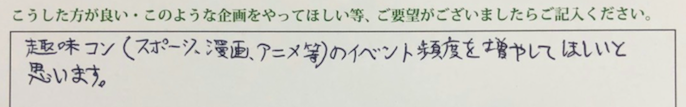 こうした方が良い・このような企画をやってほしい等、ご要望がございましたらご記入ください。
趣味コン(スポーツ、漫画、アニメ等)のイベント頻度を増やしてほしいと
思います。